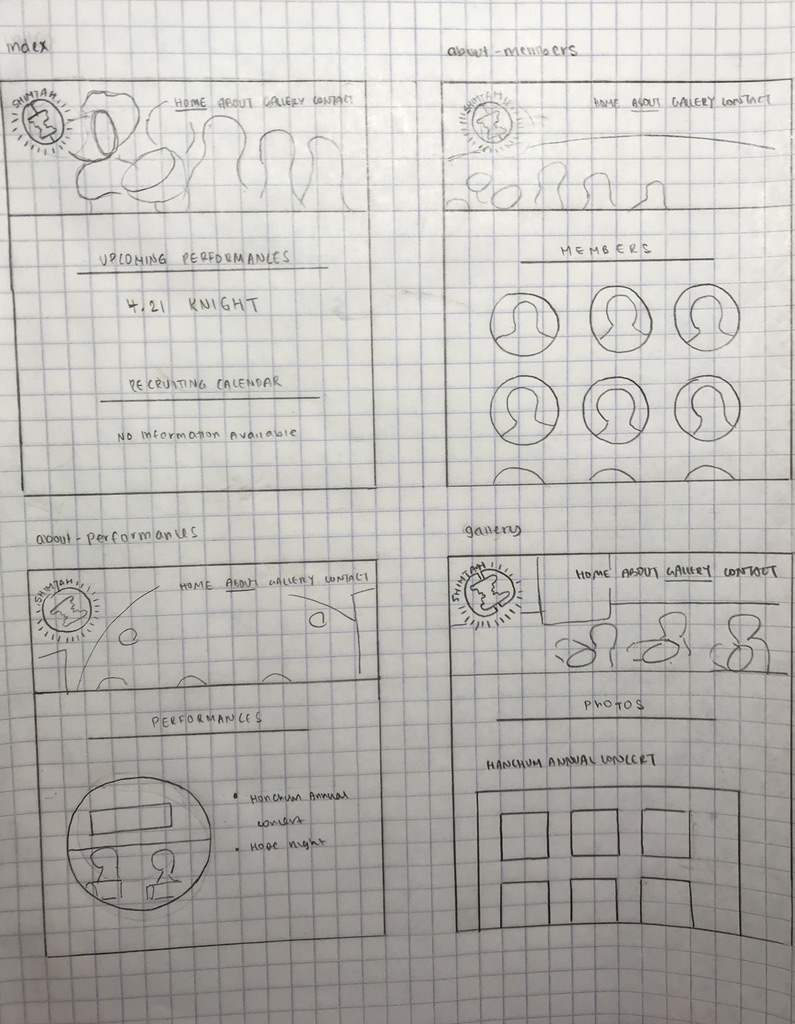 index
SHIMTAH
HOME ABOUT GALLERY CONTACT
UPCOMING PERFORMANCES
4.21 KNIGHT
RECRUITING CALENDAR
No Information Available
about-members
SHIMTAH
HOME ABOUT GALLERY CONTACT
MEMBERS
about-performances
SHIMTAH
HOME ABOUT GALLERY CONTACT
PERFORMANCES
• Hanchum Annual
concert
• Hope night
gallery
SHIMTAH
HOME ABOUT GALLERY CONTACT
PHOTOS
HANCHUM ANNUAL CONCERT